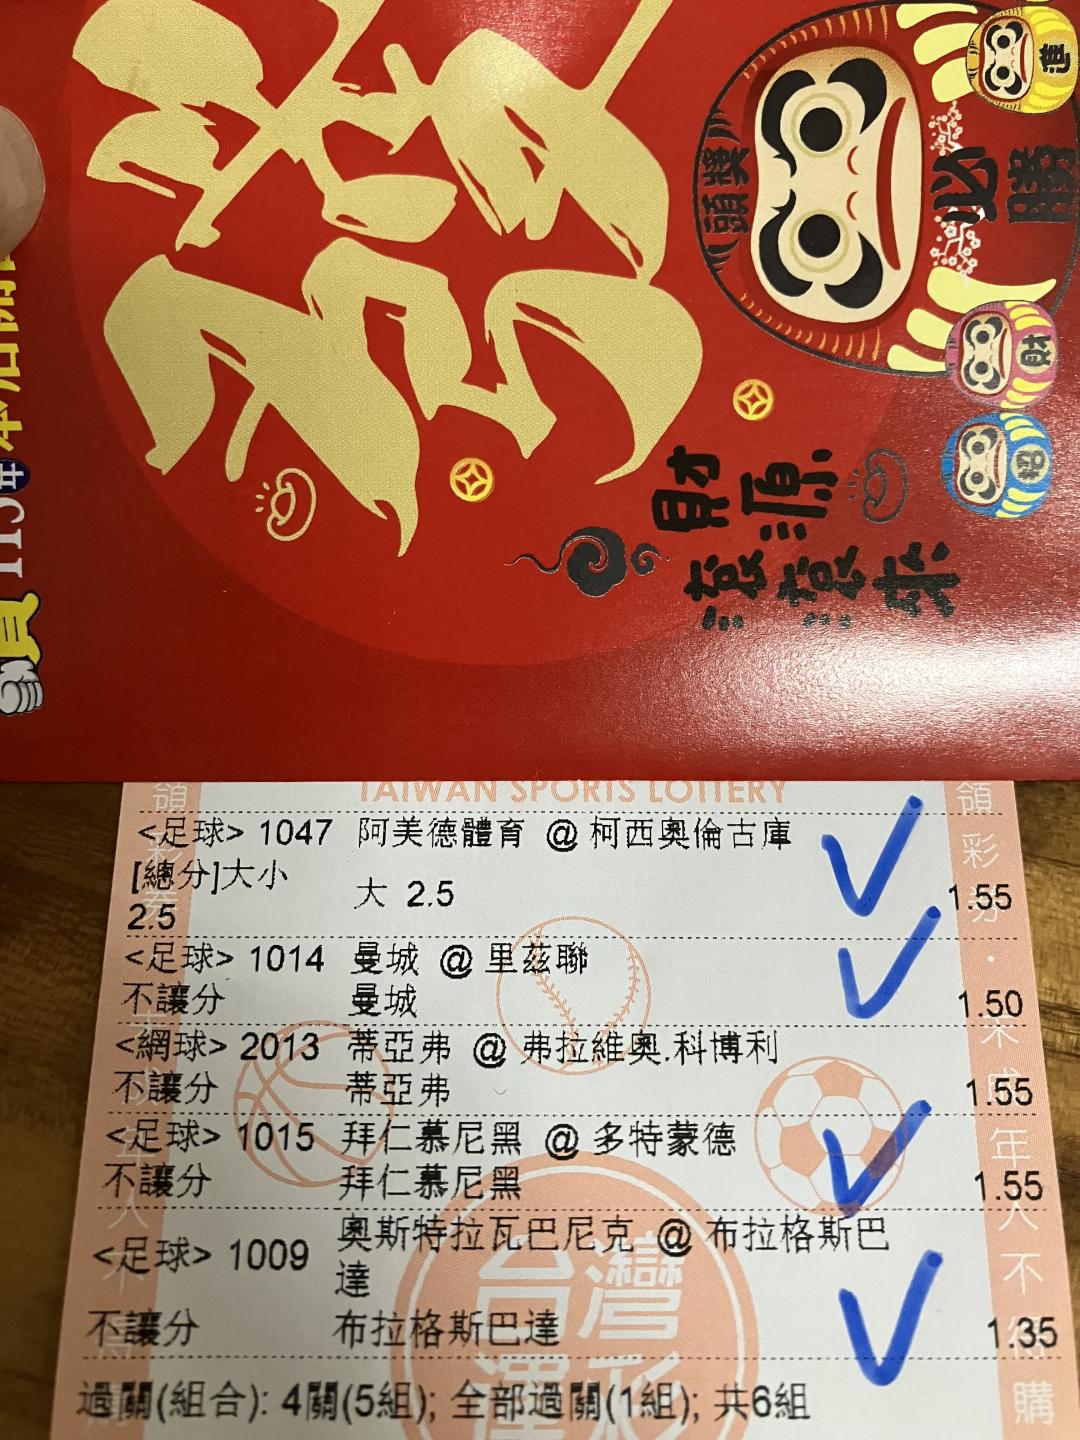 頭獎
必勝
進
財
招
財源
滾滾來
115年
TAIWAN SPORTS LOTTERY
<足球> 1047 阿美德體育 @ 柯西奧倫古庫
[總分]大小
2.5 大 2.5 1.55
<足球> 1014 曼城 @ 里茲聯
不讓分 曼城 1.50
<網球> 2013 蒂亞弗 @ 弗拉維奧.科博利
不讓分 蒂亞弗 1.55
<足球> 1015 拜仁慕尼黑 @ 多特蒙德
不讓分 拜仁慕尼黑 1.55
<足球> 1009 奧斯特拉瓦巴尼克 @ 布拉格斯巴
達
不讓分 布拉格斯巴達 1.35
過關(組合): 4關(5組); 全部過關(1組); 共6組
台灣
運彩